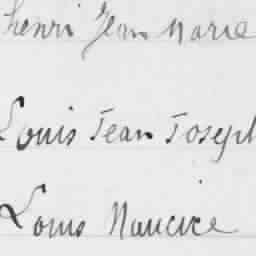 henri Jean Marie
Louis Jean Joseph
Louis Maurice